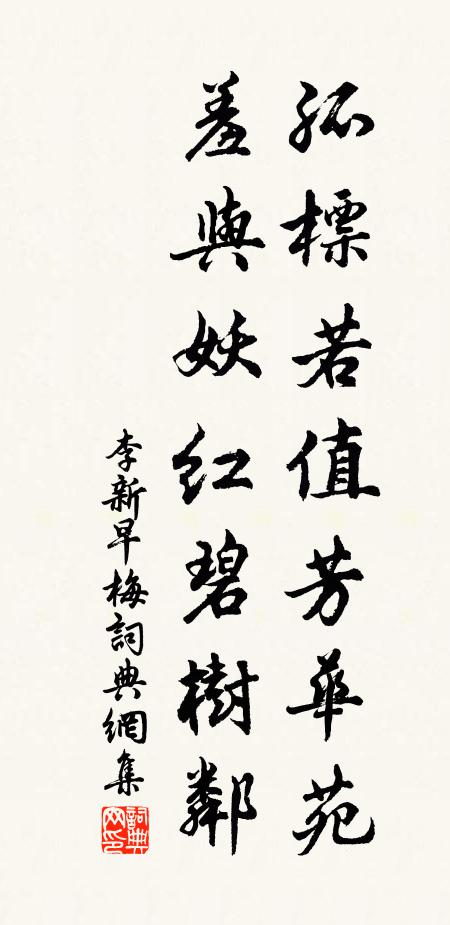 孤標若值芳華苑
羞與妖紅碧樹鄰
李新早梅詞典網集
詞典網印